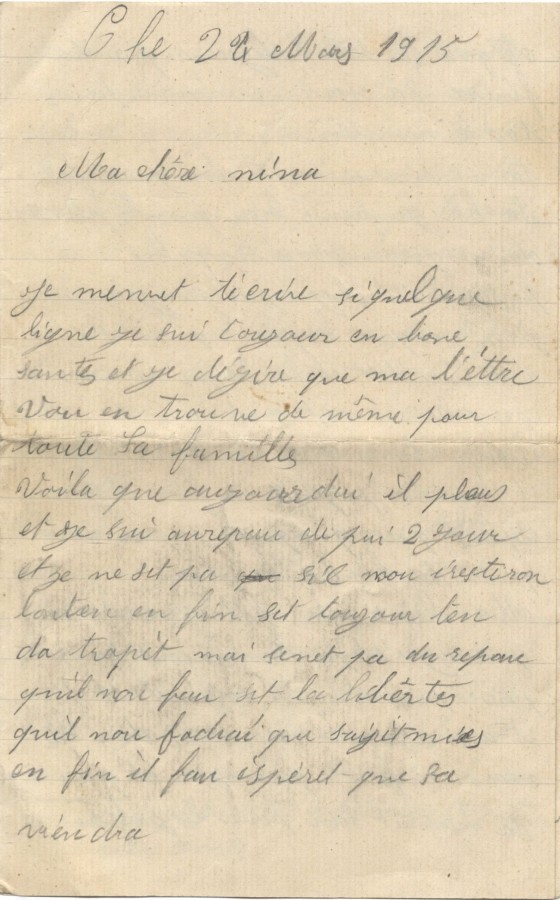 Che 24 Mars 1915
Ma chère nina
Je memet técrire siquelque
ligne je sui toujour en bone
santes et je dégire que ma l'éttre
Vou en trouve de même pour
toute La famille
Voila que aujourdui il pleus
et je sui aurepau de pui 2 jour
et je ne set pa sil nou iresteron
lonten en fin set toujour ten
da trapèt mai senet pa du repau
quil nou fau set la libèrtes
quil nou fodrai que
en fin il fau éspéret que sa
viendra